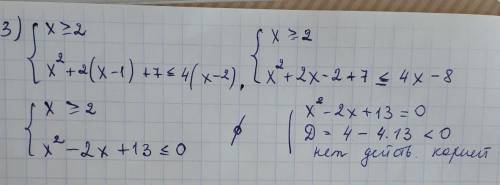 3) { x ≥ 2
x² + 2(x-1) + 7 ≤ 4(x-2) ,
{ x ≥ 2
x² + 2x - 2 + 7 ≤ 4x - 8
{ x ≥ 2
x² - 2x + 13 ≤ 0
∅
x² - 2x + 13 = 0
D = 4 - 4·13 < 0
нет действ. корней